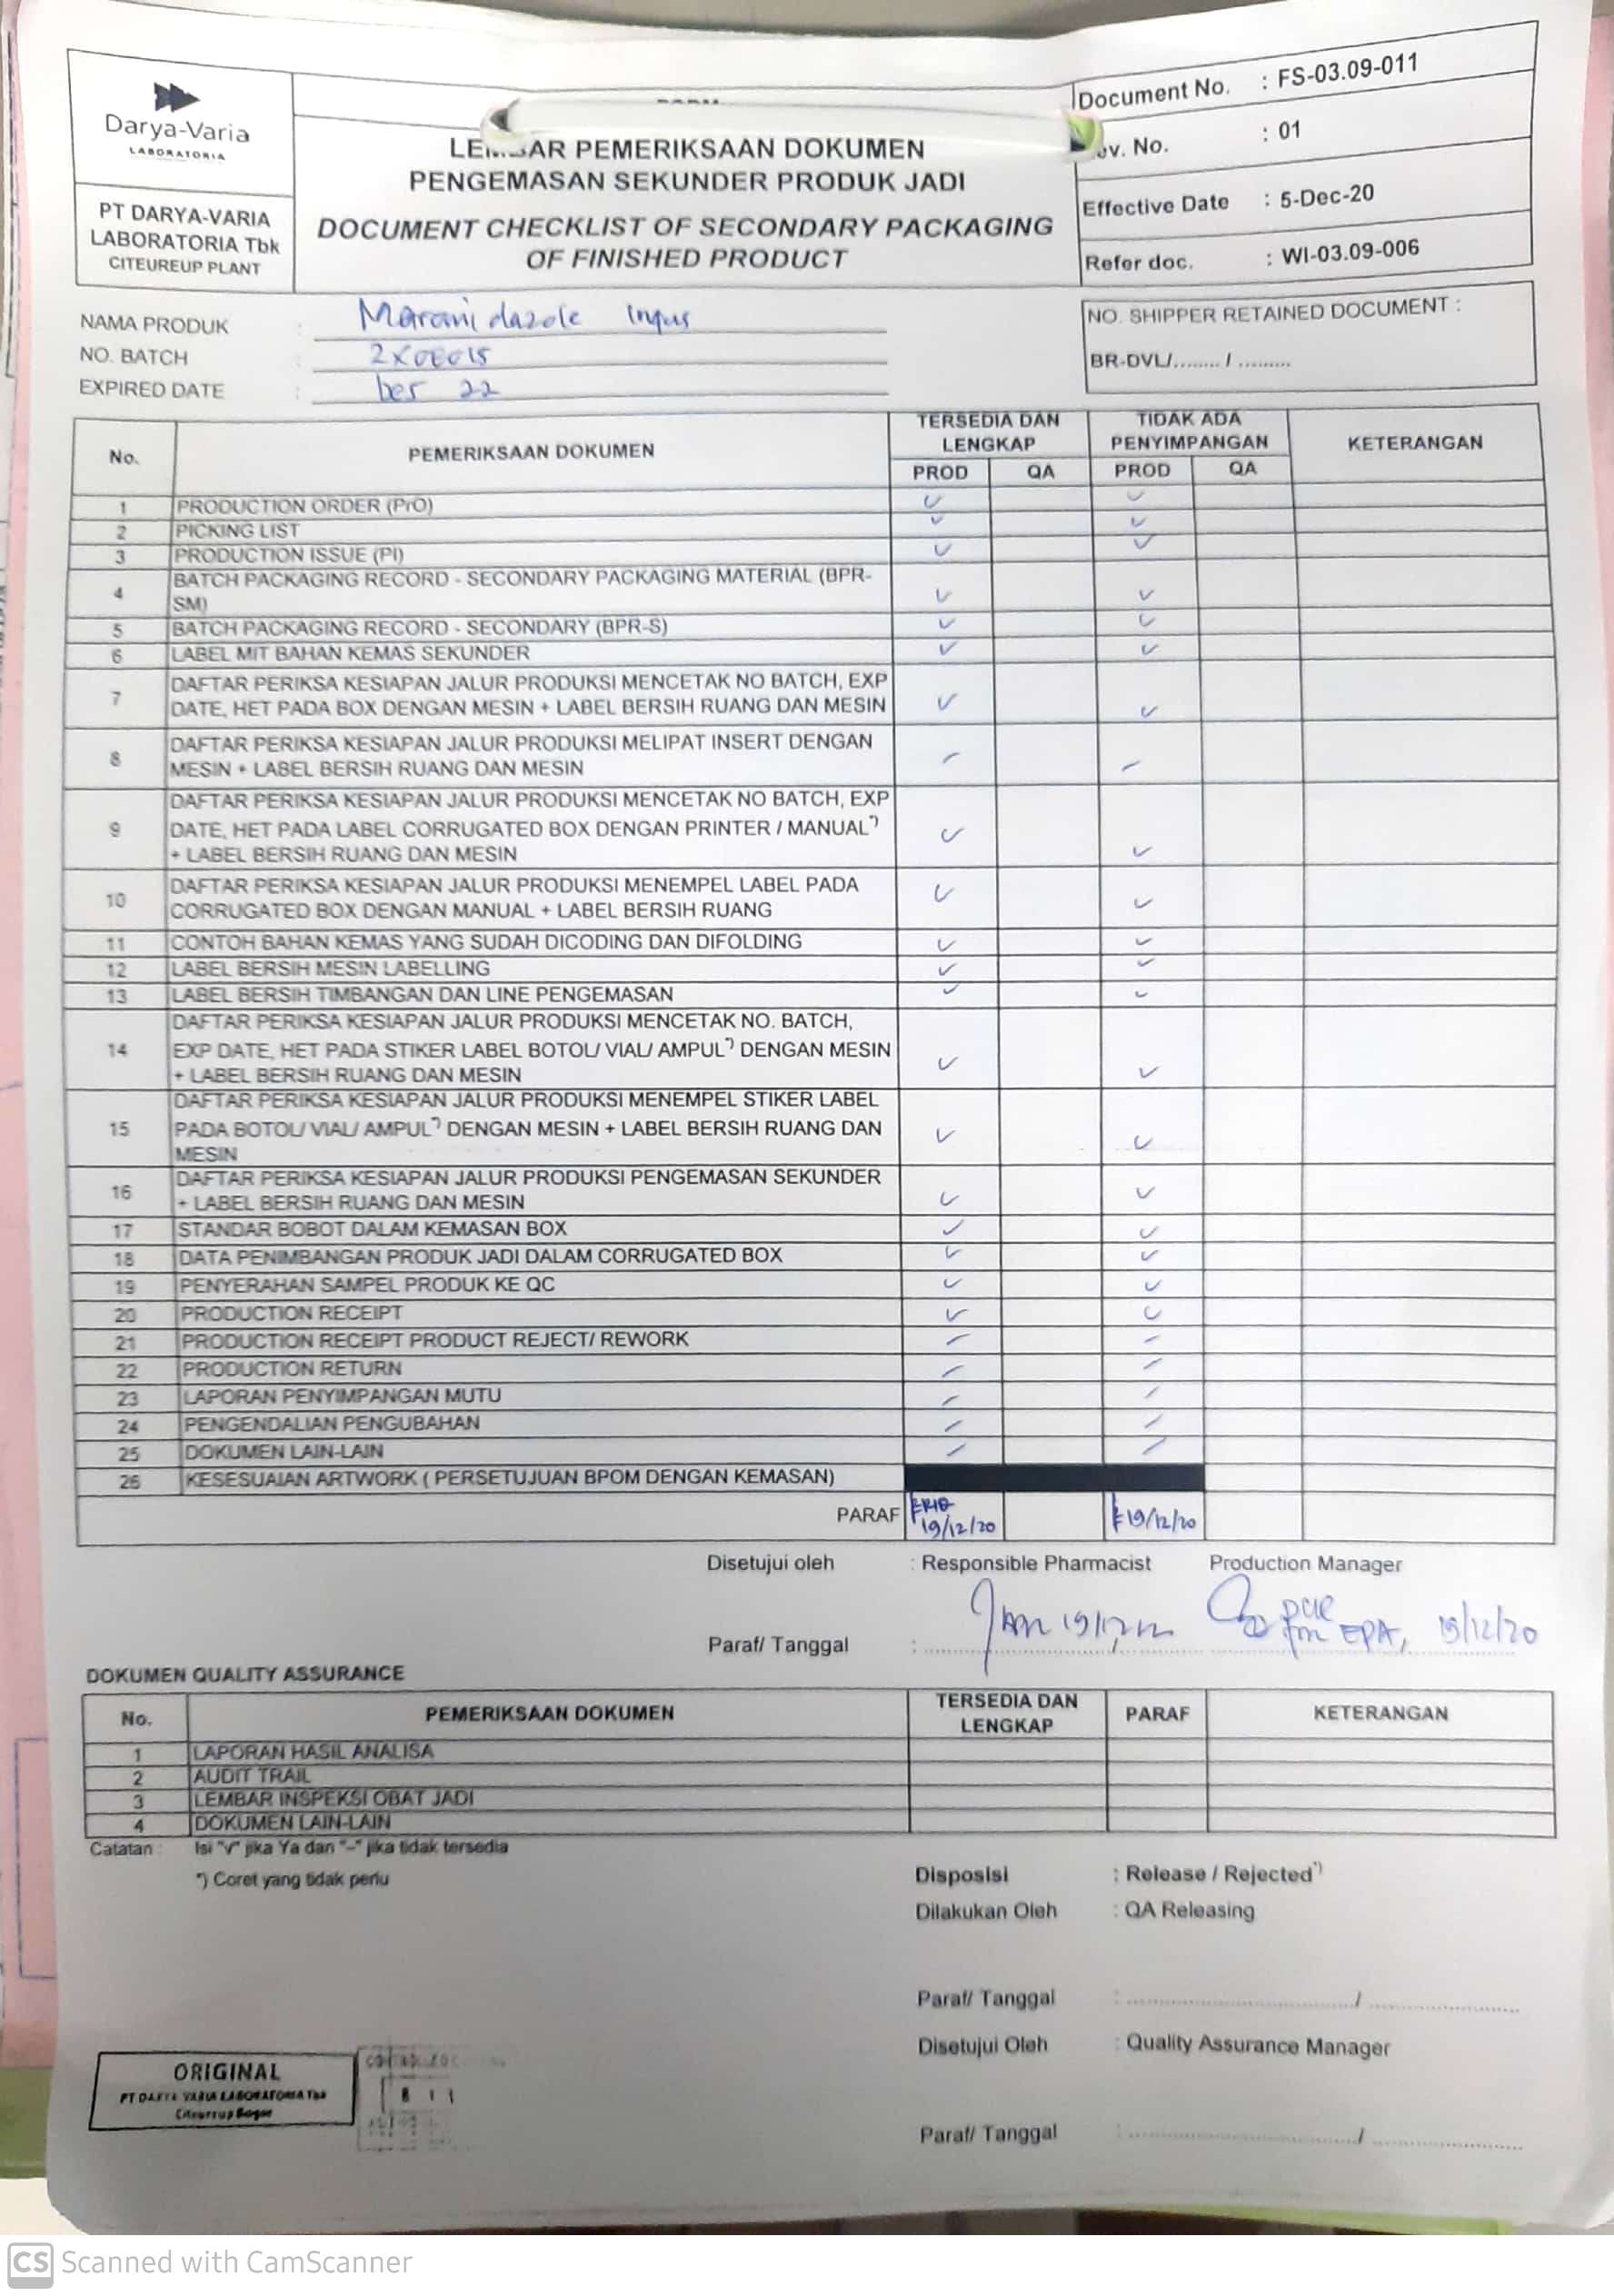 Darya-Varia
LABORATORIA
PT DARYA-VARIA
LABORATORIA Tbk
CITEUREUP PLANT
PEMERIKSAAN DOKUMEN
PENGEMASAN SEKUNDER PRODUK JADI
DOCUMENT CHECKLIST OF SECONDARY PACKAGING
OF FINISHED PRODUCT
Document No. : FS-03.09-011
No. : 01
Effective Date : 5-Dec-20
Refer doc. : WI-03.09-006
NAMA PRODUK :
NO. BATCH :
EXPIRED DATE : 22
NO. SHIPPER RETAINED DOCUMENT :
BR-DVL/........ / .........
No. PEMERIKSAAN DOKUMEN TERSEDIA DAN LENGKAP TIDAK ADA PENYIMPANGAN KETERANGAN
PROD QA PROD QA
1 PRODUCTION ORDER (PrO) ✓ ✓
2 PICKING LIST ✓ ✓
3 PRODUCTION ISSUE (PI) ✓ ✓
4 BATCH PACKAGING RECORD - SECONDARY PACKAGING MATERIAL (BPR-
SM) ✓ ✓
5 BATCH PACKAGING RECORD - SECONDARY (BPR-S) ✓ ✓
6 LABEL MIT BAHAN KEMAS SEKUNDER ✓ ✓
7 DAFTAR PERIKSA KESIAPAN JALUR PRODUKSI MENCETAK NO BATCH, EXP
DATE, HET PADA BOX DENGAN MESIN + LABEL BERSIH RUANG DAN MESIN ✓ ✓
8 DAFTAR PERIKSA KESIAPAN JALUR PRODUKSI MELIPAT INSERT DENGAN
MESIN + LABEL BERSIH RUANG DAN MESIN - -
9 DAFTAR PERIKSA KESIAPAN JALUR PRODUKSI MENCETAK NO BATCH, EXP
DATE, HET PADA LABEL CORRUGATED BOX DENGAN PRINTER / MANUAL*)
+ LABEL BERSIH RUANG DAN MESIN ✓ ✓
10 DAFTAR PERIKSA KESIAPAN JALUR PRODUKSI MENEMPEL LABEL PADA
CORRUGATED BOX DENGAN MANUAL + LABEL BERSIH RUANG ✓ ✓
11 CONTOH BAHAN KEMAS YANG SUDAH DICODING DAN DIFOLDING ✓ ✓
12 LABEL BERSIH MESIN LABELLING ✓ ✓
13 LABEL BERSIH TIMBANGAN DAN LINE PENGEMASAN ✓ ✓
14 DAFTAR PERIKSA KESIAPAN JALUR PRODUKSI MENCETAK NO. BATCH,
EXP DATE, HET PADA STIKER LABEL BOTOL/ VIAL/ AMPUL*) DENGAN MESIN
+ LABEL BERSIH RUANG DAN MESIN ✓ ✓
15 DAFTAR PERIKSA KESIAPAN JALUR PRODUKSI MENEMPEL STIKER LABEL
PADA BOTOL/ VIAL/ AMPUL*) DENGAN MESIN + LABEL BERSIH RUANG DAN
MESIN ✓ ✓
16 DAFTAR PERIKSA KESIAPAN JALUR PRODUKSI PENGEMASAN SEKUNDER
+ LABEL BERSIH RUANG DAN MESIN ✓ ✓
17 STANDAR BOBOT DALAM KEMASAN BOX ✓ ✓
18 DATA PENIMBANGAN PRODUK JADI DALAM CORRUGATED BOX ✓ ✓
19 PENYERAHAN SAMPEL PRODUK KE QC ✓ ✓
20 PRODUCTION RECEIPT ✓ ✓
21 PRODUCTION RECEIPT PRODUCT REJECT/ REWORK - -
22 PRODUCTION RETURN - -
23 LAPORAN PENYIMPANGAN MUTU - -
24 PENGENDALIAN PENGUBAHAN - -
25 DOKUMEN LAIN-LAIN - -
26 KESESUAIAN ARTWORK ( PERSETUJUAN BPOM DENGAN KEMASAN)
PARAF 19/12/20 19/12/20
Disetujui oleh : Responsible Pharmacist Production Manager
Paraf/ Tanggal : EPA, 19/12/20
DOKUMEN QUALITY ASSURANCE
No. PEMERIKSAAN DOKUMEN TERSEDIA DAN LENGKAP PARAF KETERANGAN
1 LAPORAN HASIL ANALISA
2 AUDIT TRAIL
3 LEMBAR INSPEKSI OBAT JADI
4 DOKUMEN LAIN-LAIN
Catatan : Isi "√" jika Ya dan "-" jika tidak tersedia
*) Coret yang tidak perlu
Disposisi : Release / Rejected*)
Dilakukan Oleh : QA Releasing
Paraf/ Tanggal : ................................/ ....................
Disetujui Oleh : Quality Assurance Manager
Paraf/ Tanggal : ................................/ ....................
ORIGINAL
PT DARYA VARIA LABORATORIA Tbk
Citeureup Bogor
CS Scanned with CamScanner